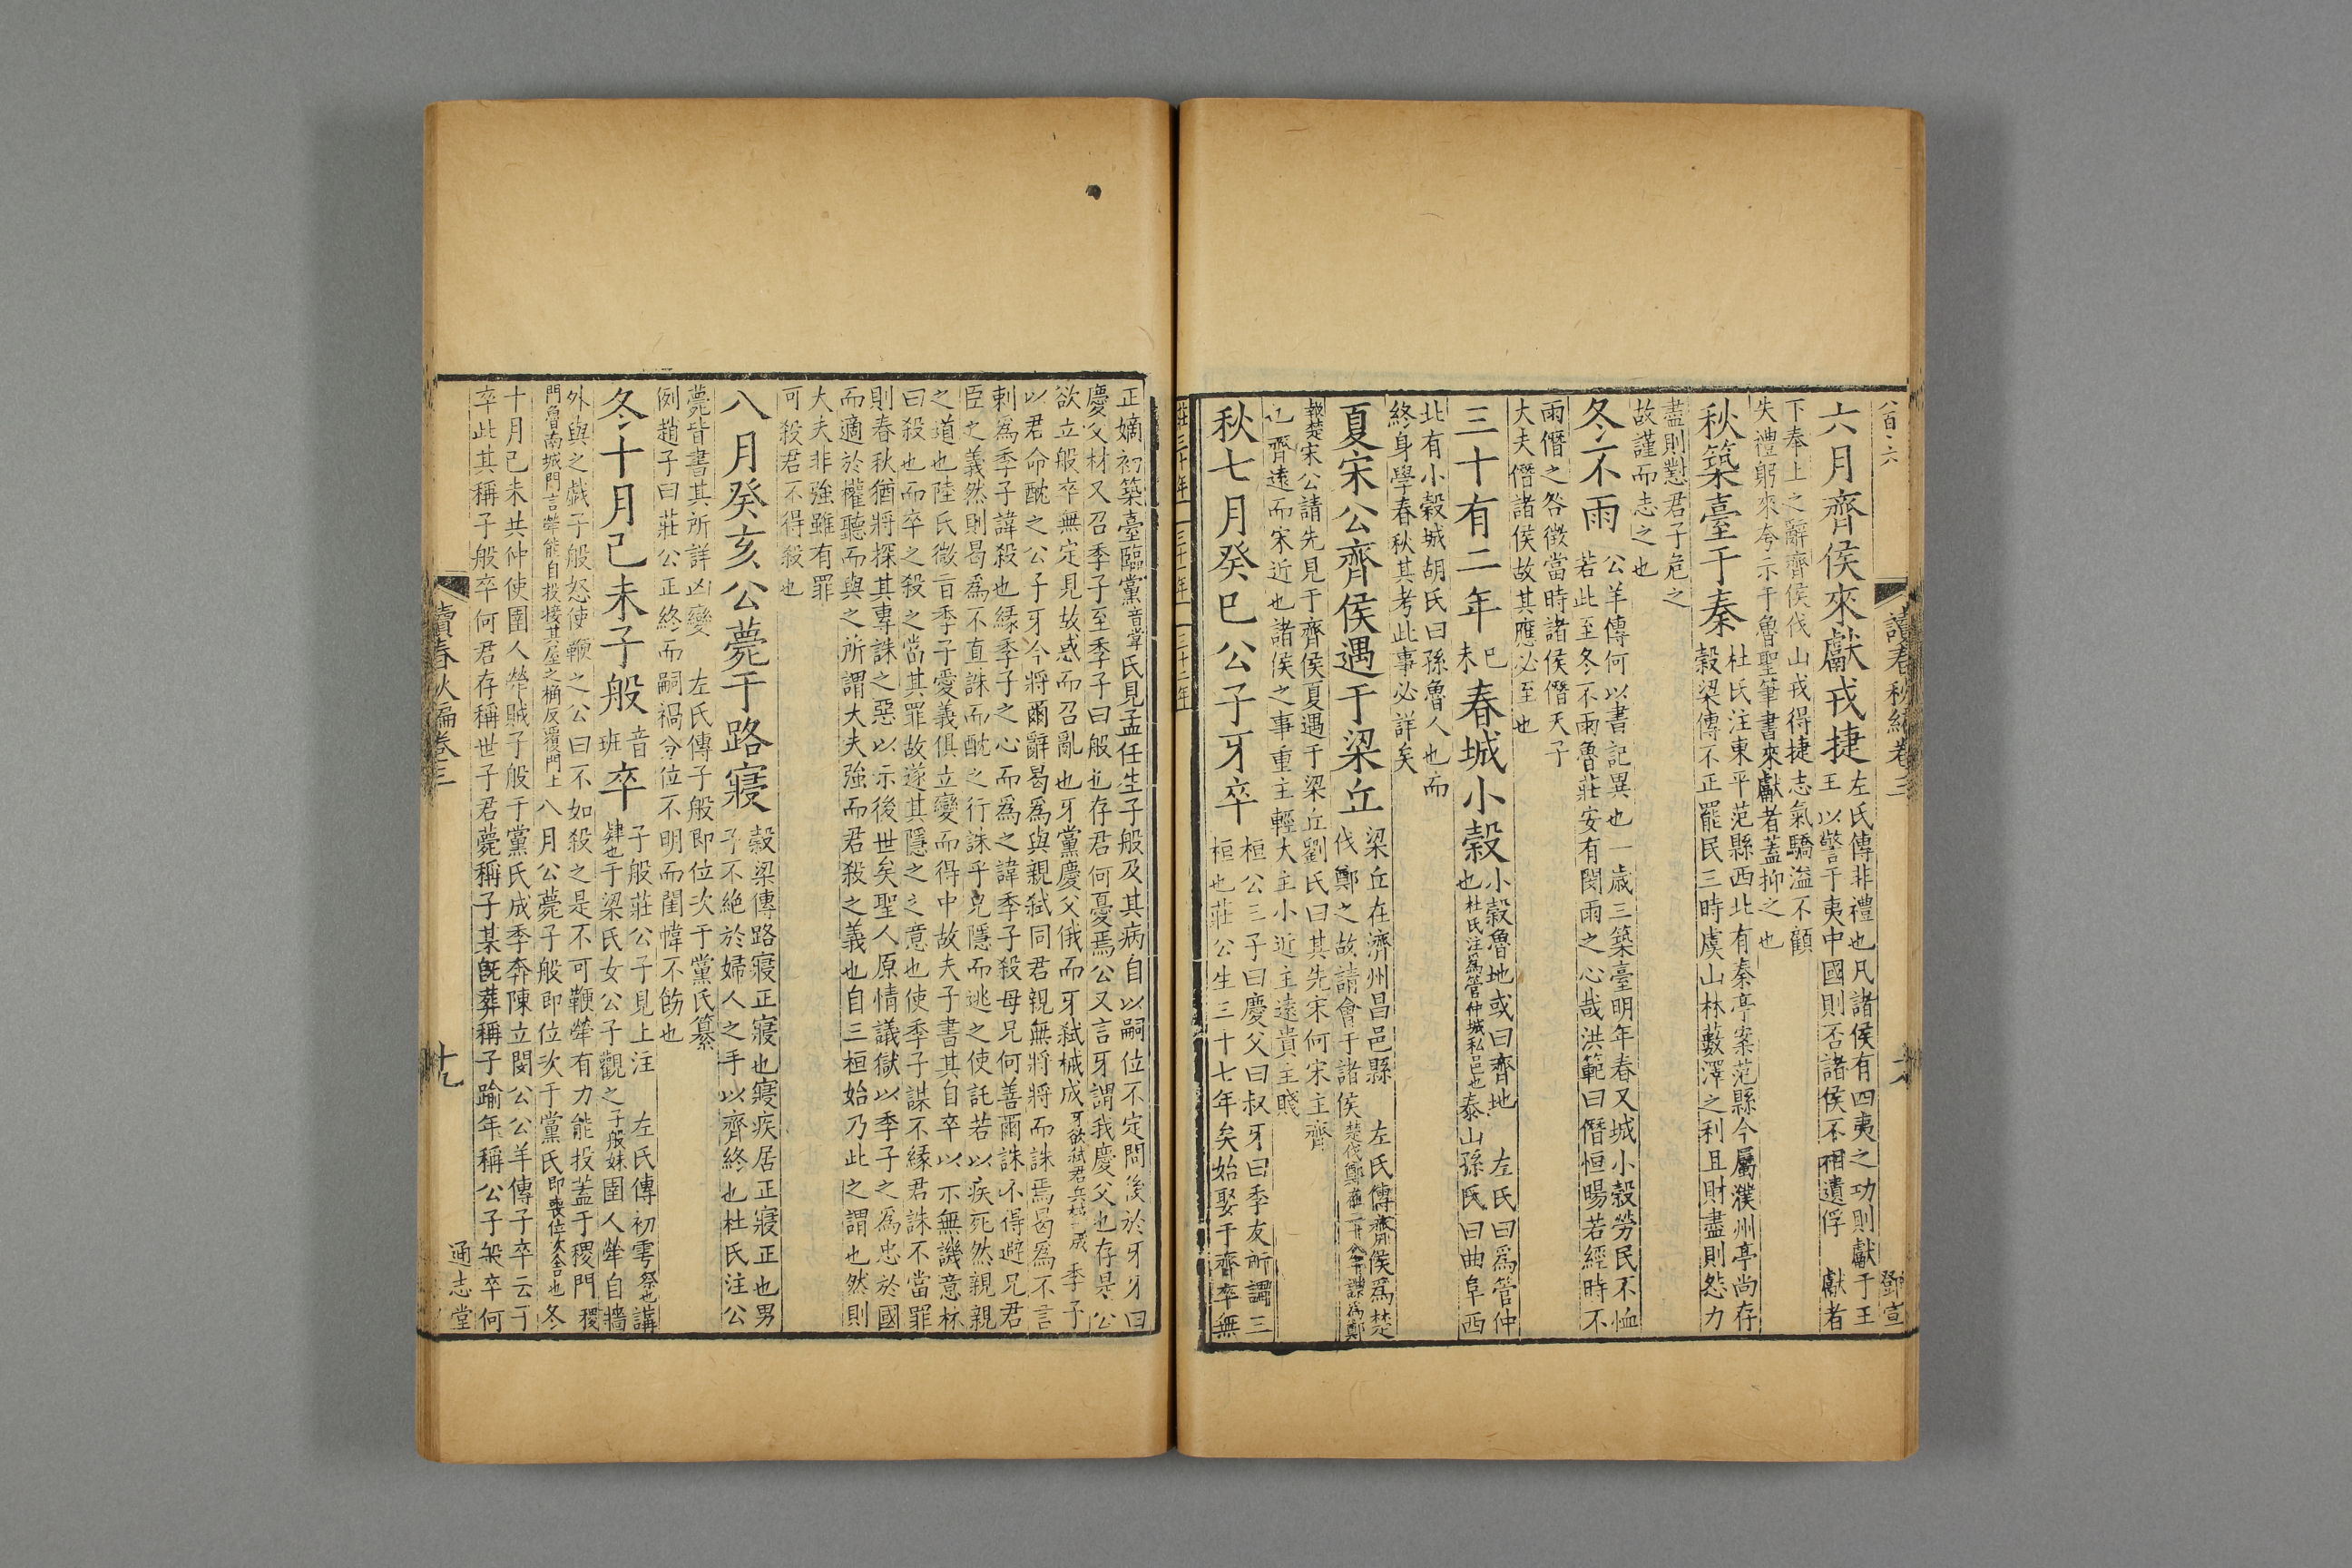 八百六
讀春秋編卷三
鄧宣
六月齊侯來獻戎捷左氏傳非禮也凡諸侯有四夷之功則獻于王
王以警于夷中國則否諸侯不相遺俘 獻者
下奉上之辭齊侯伐山戎得捷志氣驕溢不顧
失禮躬來夸示于魯聖筆書來獻者蓋抑之也
秋築臺于秦杜氏注東平范縣西北有秦亭案范縣今屬濮州亭尚存
穀梁傳不正罷民三時虞山林藪澤之利且財盡則怨力
盡則懟君子危之
故謹而志之也
冬不雨公羊傳何以書記異也一歲三築臺明年春又城小穀勞民不恤
若此至冬不雨魯莊安有閔雨之心哉洪範曰僭恒暘若經時不
雨僭之咎徵當時諸侯僭天子
大夫僭諸侯故其應必至也
三十有二年己未春城小穀小穀魯地或曰齊地 左氏曰爲管仲
也杜氏注爲管仲城私邑也泰山孫氏曰曲阜西
北有小穀城胡氏曰孫魯人也而
終身學春秋其考此事必詳矣
夏宋公齊侯遇于梁丘梁丘在濟州昌邑縣 左氏傳齊侯爲楚
伐鄭之故請會于諸侯楚伐鄭在二十八年謀爲鄭
報楚宋公請先見于齊侯夏遇于梁丘劉氏曰其先宋何宋主齊
也齊遠而宋近也諸侯之事重主輕大主小近主遠貴主賤
秋七月癸巳公子牙卒桓公三子曰慶父曰叔牙曰季友所謂三
桓也莊公生三十七年矣始娶于齊卒無
莊三十年 三十一年 三十二年
正嫡初築臺臨黨音掌氏見孟任生子般及其病自以嗣位不定問後於牙牙曰
慶父材又召季子至季子曰般也存君何憂焉公又言牙謂我慶父也存畏公
欲立般卒無定見故惑而召亂也牙黨慶父俄而牙弒械成牙欲弒君兵械已成 季子
以君命酖之公子牙今將爾辭曷爲與親弒同君親無將將而誅焉曷爲不言
刺爲季子諱殺也緣季子之心而爲之諱季子殺母兄何善爾誅不得避兄君
臣之義然則曷爲不直誅而酖之行誅乎兄隱而逃之使託若以疾死然親親
之道也陸氏微旨季子愛義俱立變而得中故夫子書其自卒以示無譏意林
曰殺也而卒之殺之當其罪故遂其隱之之意也使季子謀不緣君誅不當罪
則春秋猶將探其專誅之惡以示後世矣聖人原情議獄以季子之爲忠於國
而適於權聽而與之所謂大夫強而君殺之義也自三桓始乃此之謂也然則
大夫非強雖有罪
可殺君不得殺也
八月癸亥公薨于路寢穀梁傳路寢正寢也寢疾居正寢正也男
子不絕於婦人之手以齊終也杜氏注公
薨皆書其所詳凶變 左氏傳子般即位次于黨氏纂
例趙子曰莊公正終而嗣禍今位不明而閨幃不飭也
冬十月己未子般音班卒子般莊公子見上注 左氏傳初雩祭也講
肄也于梁氏女公子觀之子般妹圉人犖自牆
外與之戲子般怒使鞭之公曰不如殺之是不可鞭犖有力能投蓋于稷門稷
門魯南城門言犖能自投接其屋之桷反覆門上八月公薨子般即位次于黨氏即喪位次舍也冬
十月己未共仲使圉人犖賊子般于黨氏成季奔陳立閔公公羊傳子卒云子
卒此其稱子般卒何君存稱世子君薨稱子某旣葬稱子踰年稱公子般卒何
讀春秋編卷三
十九
通志堂